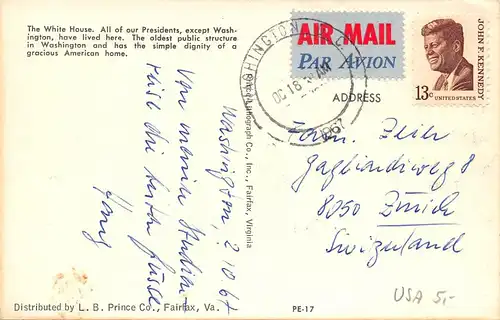 The White House. All of our Presidents, except Wash-
ington, have lived here. The oldest public structure
in Washington and has the simple dignity of a
gracious American home.
Washington, 2.10.67
Von meiner Studien-
reise die besten Grüsse
Distributed by L. B. Prince Co., Fairfax, Va.
Prince Lithograph Co., Inc., Fairfax, Virginia
WASHINGTON, D.C.
OC 18
AM
1967
AIR MAIL
PAR AVION
ADDRESS
JOHN F. KENNEDY
13c
UNITED STATES
Gagliardiweg 8
8050 Zürich
Switzerland
PE-17
USA 5,-